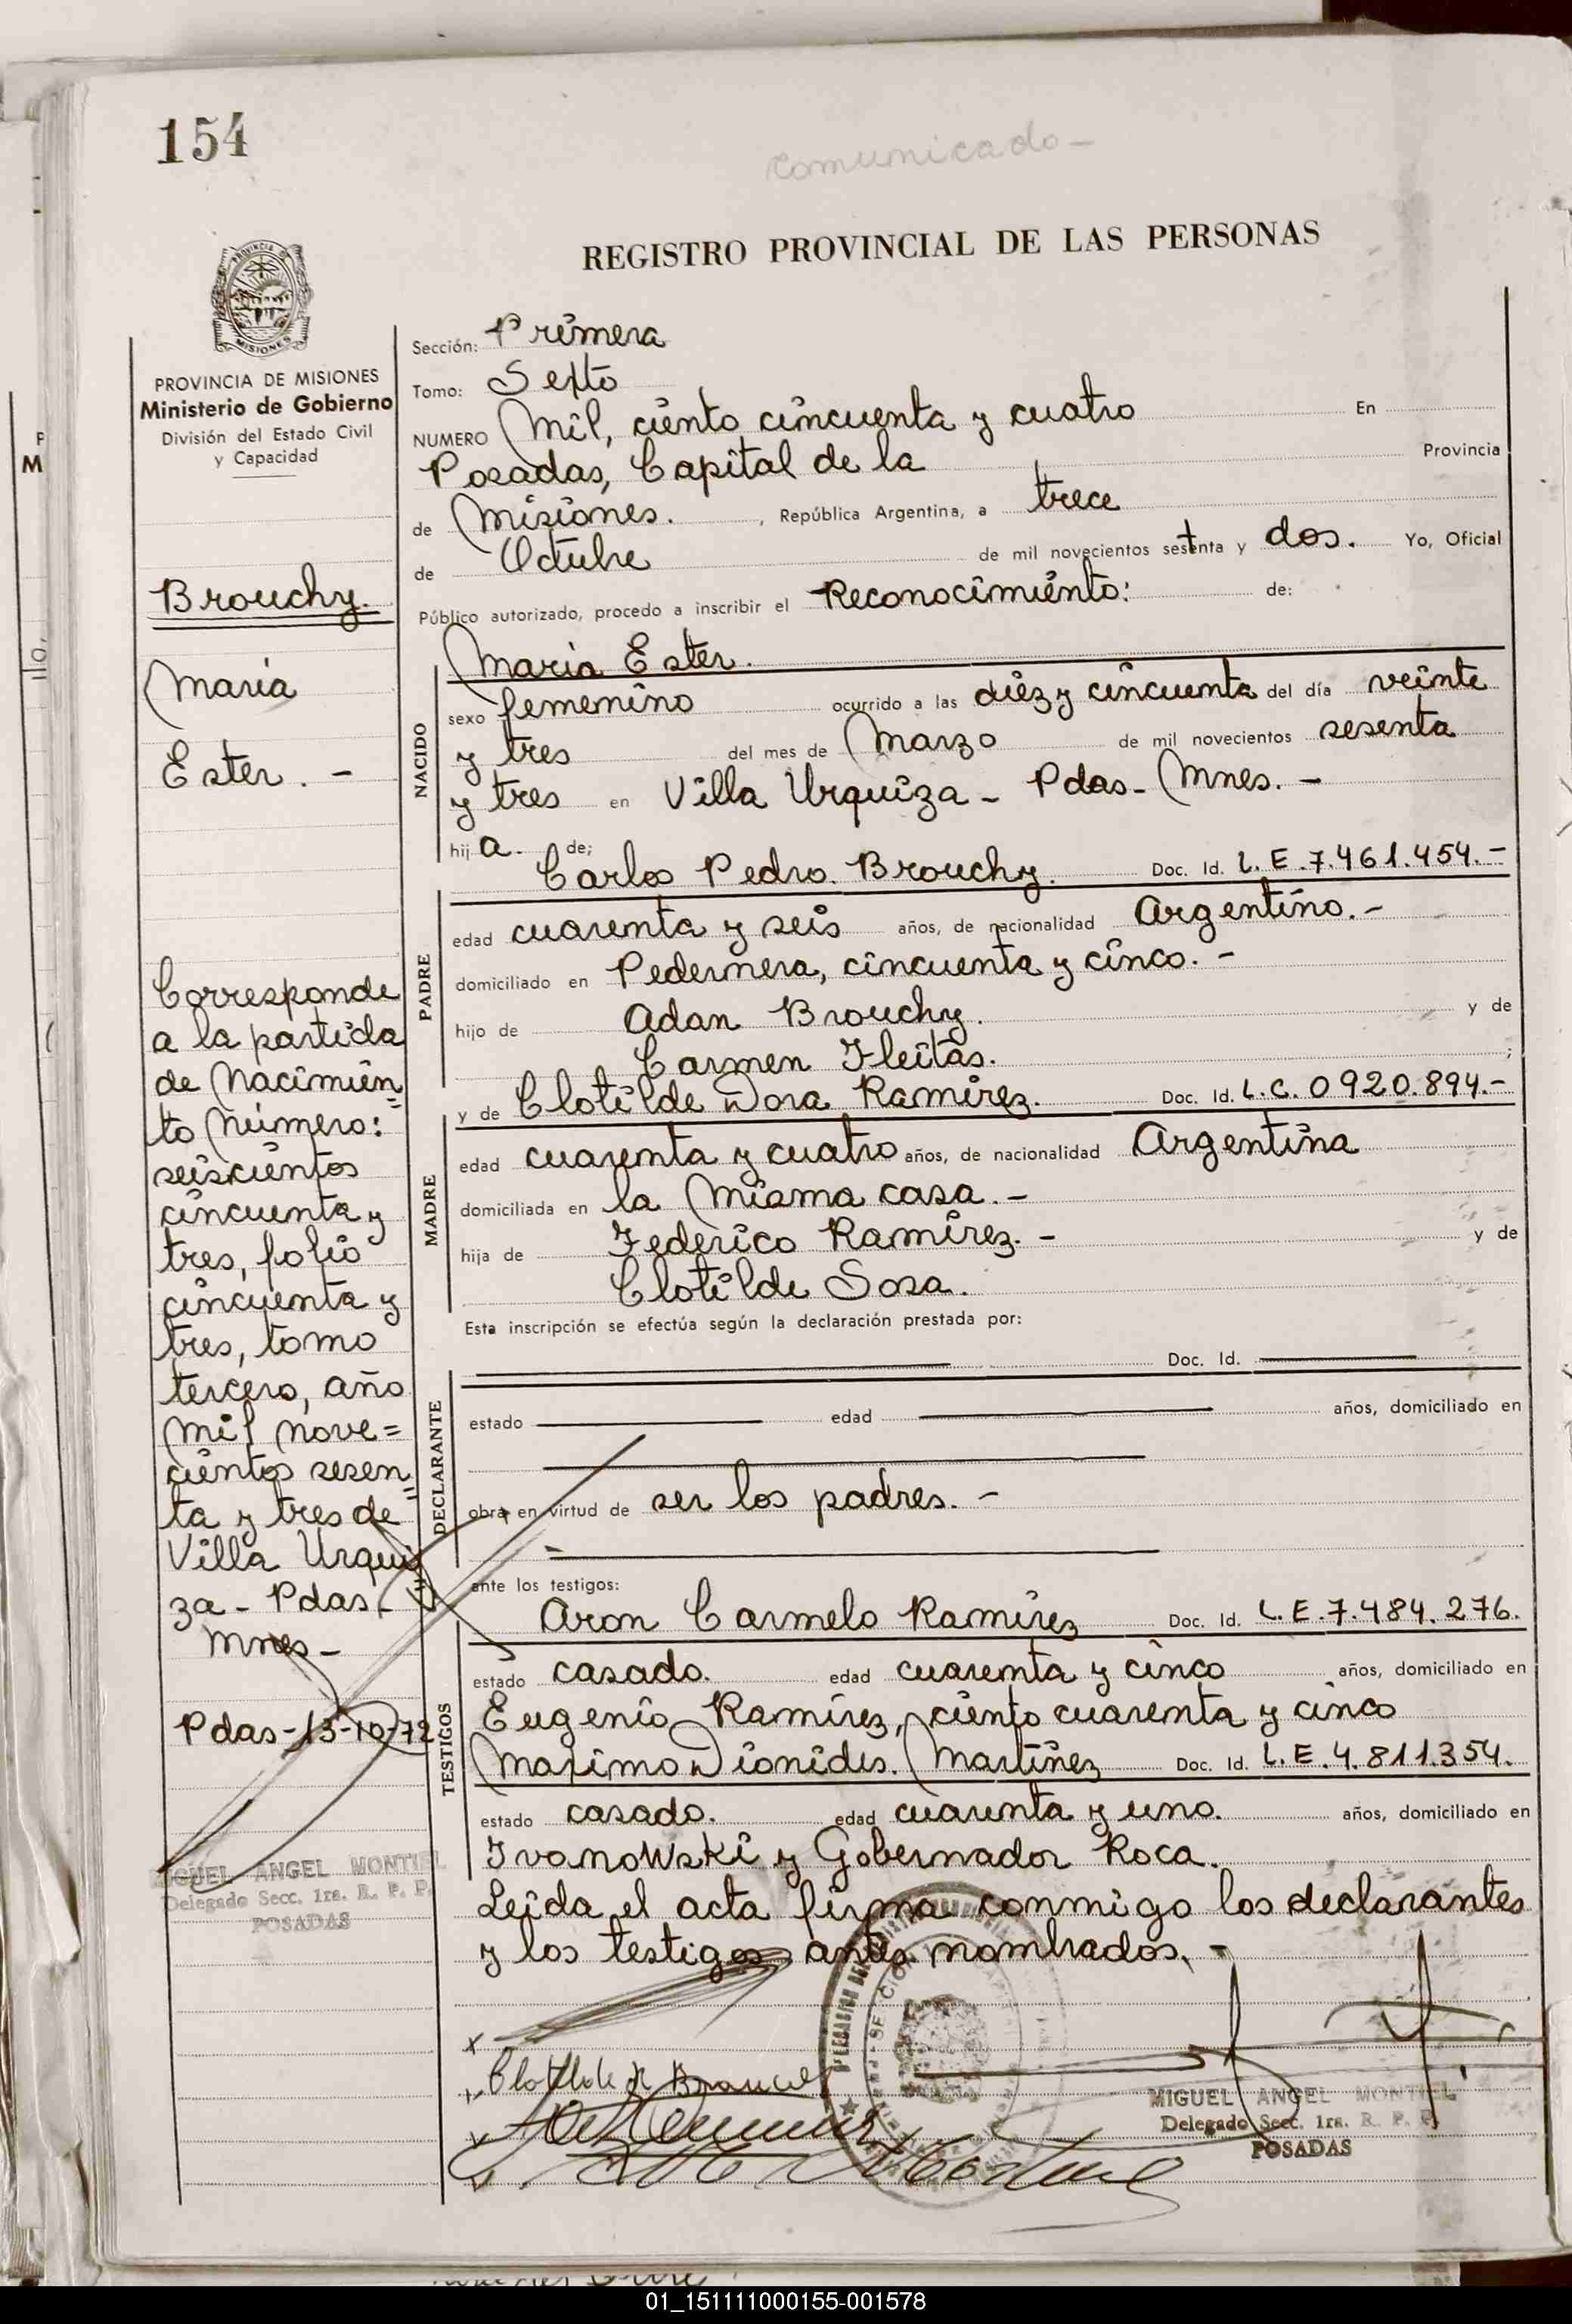 154
comunicado -
REGISTRO PROVINCIAL DE LAS PERSONAS
PROVINCIA
MISIONES
PROVINCIA DE MISIONES
Ministerio de Gobierno
División del Estado Civil
y Capacidad
Brouchy.
Maria
Ester. -
Corresponde
a la partida
de Nacimien=
to Número:
seiscientos
cincuenta y
tres, folio
cincuenta y
tres, tomo
tercero, año
mil nove=
cientos sesen=
ta y tres de
Villa Urqui
za - Pdas.-
Mnes -
Pdas-13-10-72
MIGUEL ANGEL MONTIEL
Delegado Secc. 1ra. R. P. P.
POSADAS
Sección: Primera
Tomo: Sexto
NUMERO Mil, ciento cincuenta y cuatro En
Posadas, Capital de la Provincia
de Misiones. , República Argentina, a trece
de Octubre de mil novecientos setenta y dos. Yo, Oficial
Público autorizado, procedo a inscribir el Reconocimiento: de:
Maria Ester.
NACIDO
sexo femenino ocurrido a las diez y cincuenta del día veinte
y tres del mes de Marzo de mil novecientos sesenta
y tres en Villa Urquiza - Pdas - Mnes. -
hija. de;
Carlos Pedro Brouchy. Doc. Id. L.E.7.461.454.-
PADRE
edad cuarenta y seis años, de nacionalidad Argentino.-
domiciliado en Pedernera, cincuenta y cinco. -
hijo de Adan Brouchy. y de
Carmen Fleitas. ;
y de Clotilde Dora Ramirez. Doc. Id. L.C. 0920.894.-
MADRE
edad cuarenta y cuatro años, de nacionalidad Argentina
domiciliada en la misma casa. -
hija de Federico Ramirez. - y de
Clotilde Sosa.
Esta inscripción se efectúa según la declaración prestada por:
Doc. Id.
DECLARANTE
estado edad años, domiciliado en
obra en virtud de ser los padres. -
ante los testigos:
Aron Carmelo Ramirez Doc. Id. L.E.7.484.276.
TESTIGOS
estado casado. edad cuarenta y cinco años, domiciliado en
Eugenio Ramirez, ciento cuarenta y cinco
Maximo Dionides. Martinez Doc. Id. L.E.4.811.354.
estado casado. edad cuarenta y uno. años, domiciliado en
Ivanowski y Gobernador Roca.
Leida el acta firma conmigo los declarantes
y los testigos antes nombrados. -
MIGUEL ANGEL MONTIEL
Delegado Secc. 1ra. R. P. P.
POSADAS
01_151111000155-001578